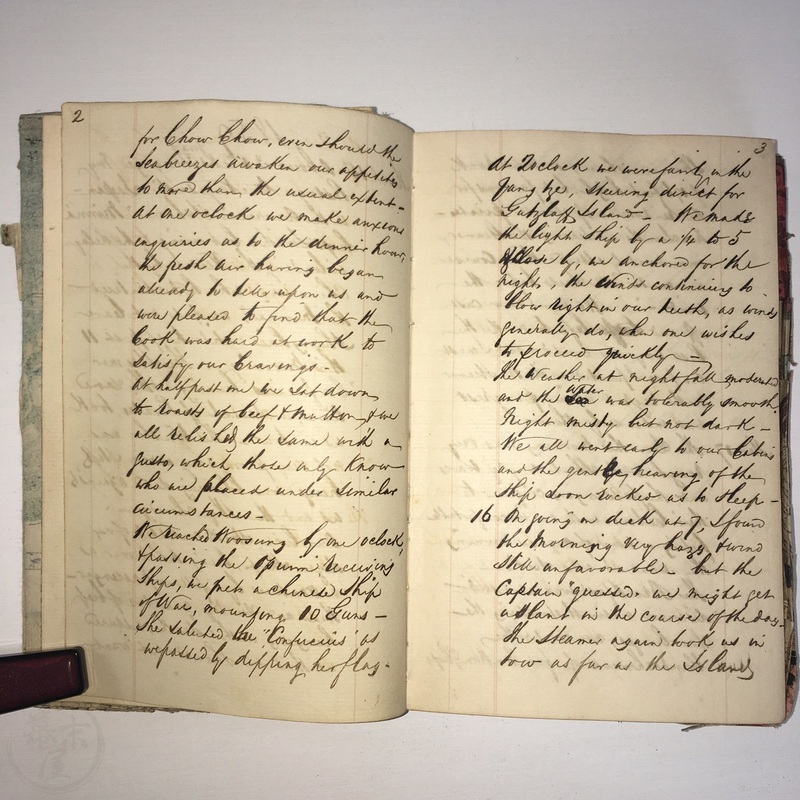 2
for Chow Chow, even should the
Seabreezes awaken our appetites
to more than the usual extent -
At one oclock we make anxious
enquiries as to the dinner hour,
the fresh air having began
already to tell upon us and
were pleased to find that the
Cook was hard at work to
satisfy our Cravings -
At half past one we sat down
to roasts of beef & mutton, & we
all relished the same with a
gusto, which those only know
who are placed under similar
circumstances -
We reached Woosung by one oclock,
& passing the opium receiving
Ships, we met a Chinese Ship
of War, mounting 10 Guns -
She saluted the "Confucius" as
we passed by dipping her flag -
3
At 2 oclock we were fairly in the
Yang tze, steering direct for
Gutzlaff Island - We made
the light ship by a 1/4 to 5
Close by, we anchored for the
night, the winds continuing to
blow right in our teeth, as winds
generally do, when one wishes
to proceed quickly -
The Weather at nightfall moderated
and the water was tolerably smooth.
Night misty but not dark -
We all went early to our Cabins
and the gentle heaving of the
Ship soon rocked us to sleep -
16 On going on deck at 7, I found
the Morning very hazy, & wind
still unfavorable - but the
Captain "guessed" we might get
a slant in the course of the day -
The Steamer again took us in
tow as far as the Island